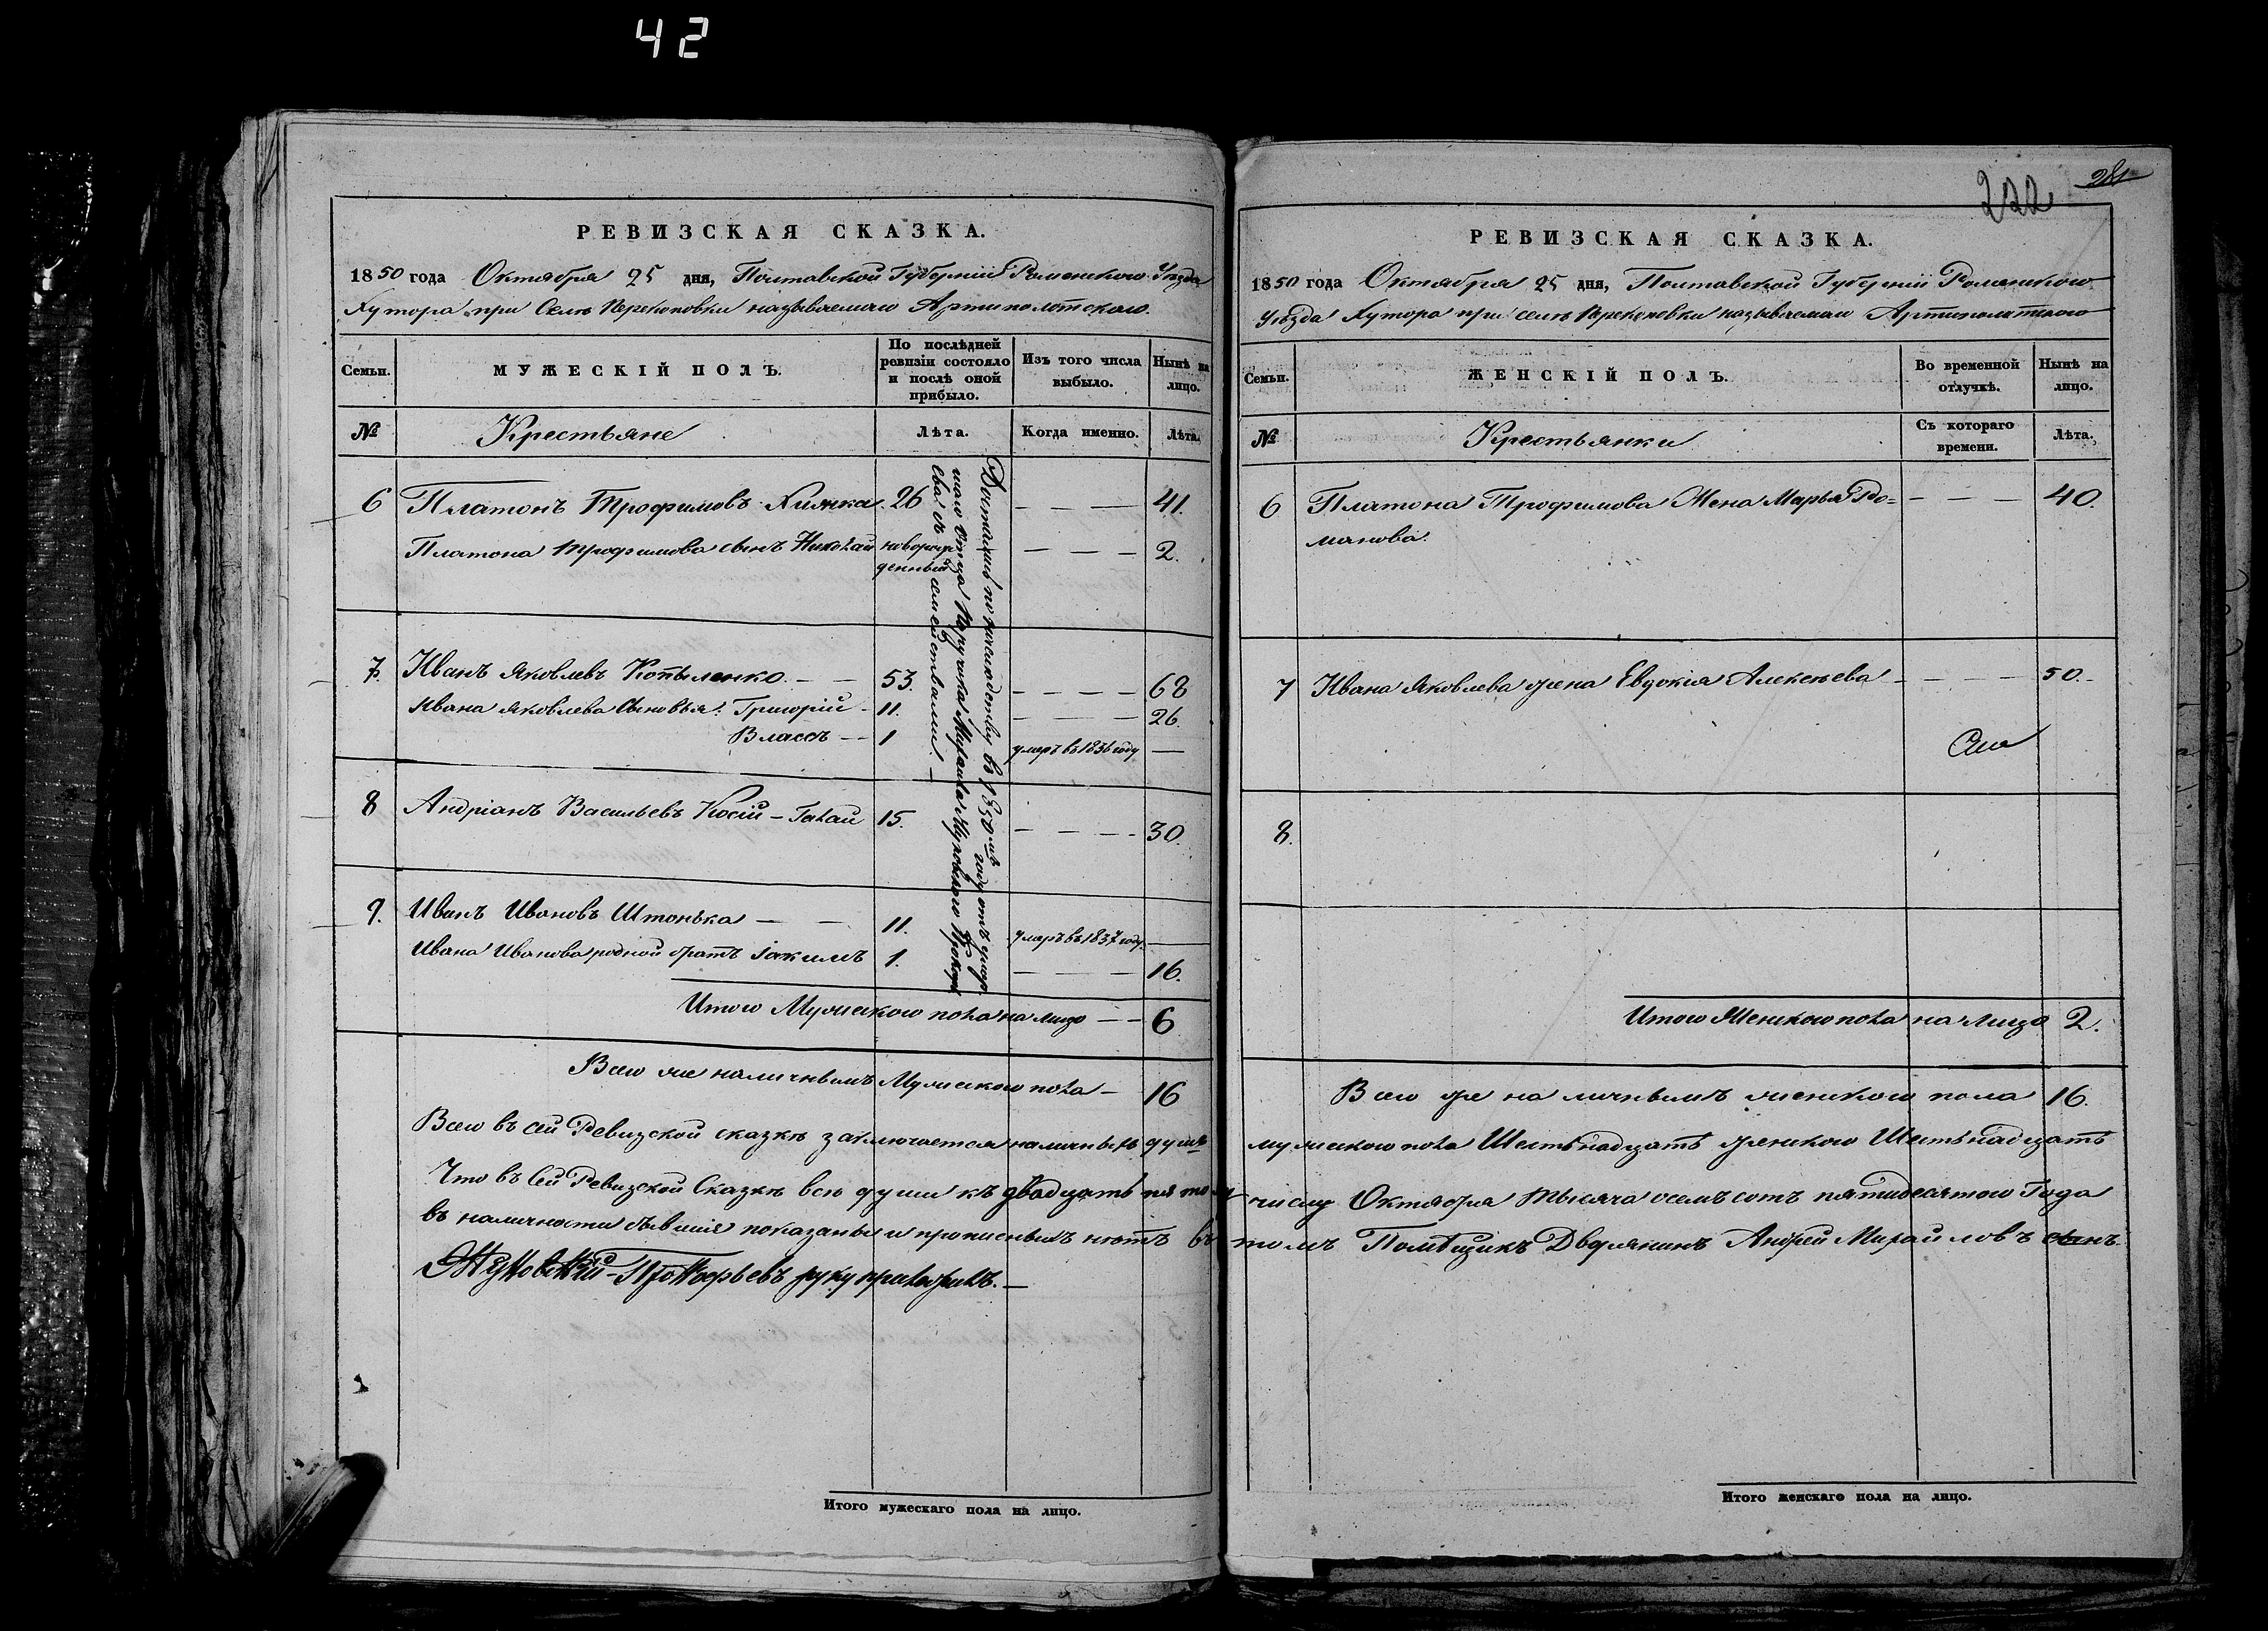 42
РЕВИЗСКАЯ СКАЗКА.
1850 года Октября 25 дня, Полтавской Губерніи Роменского Уѣзда
Хутора при Селѣ Перекоповки называемаго Артиполотского.
Семьи.
МУЖЕСКІЙ ПОЛЪ.
По послѣдней ревизіи состояло и послѣ оной прибыло.
Изъ того числа выбыло.
Нынѣ на лицо.
№
Крестьяне
Лѣта.
Когда именно.
Лѣта.
6 Платонъ Трофимовъ Хилнка. 26 — — — 41.
Платона Трофимова сынъ Николай новорожденный — — — 2.
7. Иванъ Яковлевъ Копыленко. — — 53. — — — — 68
Ивана Яковлева Сыновья: Григорій - 11. — — — 26.
Власъ — — 1 умеръ въ 1836 году —
8 Андріанъ Васильевъ Косій - Галай 15. — — — - 30.
9. Иванъ Ивановъ Штонька — — 11. умеръ въ 1837 году. —
Ивана Иванова родной братъ Іакимъ 1. — — — 16.
Достались по наслѣдству въ 1850мъ году отъ умер
шаго Отца Поручика Михаила Жуковского Прокофь
ева съ семействами. —
Итого Мужеского пола на лицо — — 6
Всего же наличнымъ Мужеского пола — 16
Всего въ сей Ревизской сказкѣ заключается наличныхъ душъ
Что въ Сей Ревизской Сказкѣ всѣ души къ двадцать пятому
въ наличности бывшія показаны и прописныхъ нѣтъ въ
Жуковскій-Прокофьевъ руку приложилъ. —
Итого мужескаго пола на лицо.
222
281
РЕВИЗСКАЯ СКАЗКА.
1850 года Октября 25 дня, Полтавской Губерніи Роменского
Уѣзда Хутора при селѣ Перекоповки называемаго Артиполотского
Семьи.
ЖЕНСКІЙ ПОЛЪ.
Во временной отлучкѣ.
Нынѣ на лицо.
№
Крестьянки
Съ котораго времени.
Лѣта.
6 Платона Трофимова Жена Марья Ро- — — — 40.
манова.
7 Ивана Яковлева жена Евдокія Алексѣева - — — — 50.
8.
Итого Женского пола на лицо 2.
Всего же на личнымъ женского пола 16.
мужеского пола Шестьнадцать женского Шестьнадцать
числу Октября тысяча осемъ сотъ пятидесятого Года
томъ Помѣщикъ Дворянинъ Андрей Михайловъ сынъ
Итого женскаго пола на лицо.